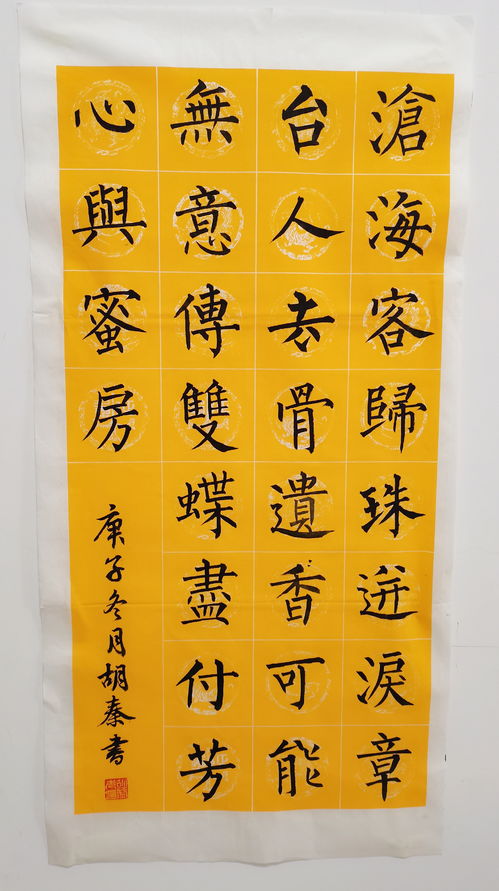 滄海客歸珠迸淚章
台人去骨遺香可能
無意傳雙蝶盡付芳
心與蜜房
庚子冬月胡秦書